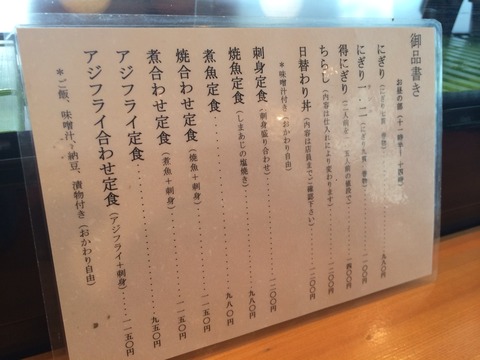 御品書き
お昼の部(十一時半〜十四時)
にぎり(にぎり七貫 巻物)・・・九八〇円
にぎり一・二(にぎり九貫 巻物)・・・一一〇〇円
得にぎり(二人前を 一、五人前の値段で)・・・一四〇〇円
ちらし(内容は仕入れにより変わります)・・・一一〇〇円
日替わり丼(内容は店員までご確認下さい)・・・一一〇〇円
*味噌汁付き(おかわり自由)
刺身定食(刺身盛り合わせ)・・・一一〇〇円
焼魚定食(しまあじの塩焼き)・・・九八〇円
煮魚定食・・・九八〇円
焼合わせ定食(焼魚+刺身)・・・一一五〇円
煮合わせ定食(煮魚+刺身)・・・一一五〇円
アジフライ定食・・・九五〇円
アジフライ合わせ定食(アジフライ+刺身)・・・一一五〇円
*ご飯、味噌汁、納豆、漬物付き(おかわり自由)